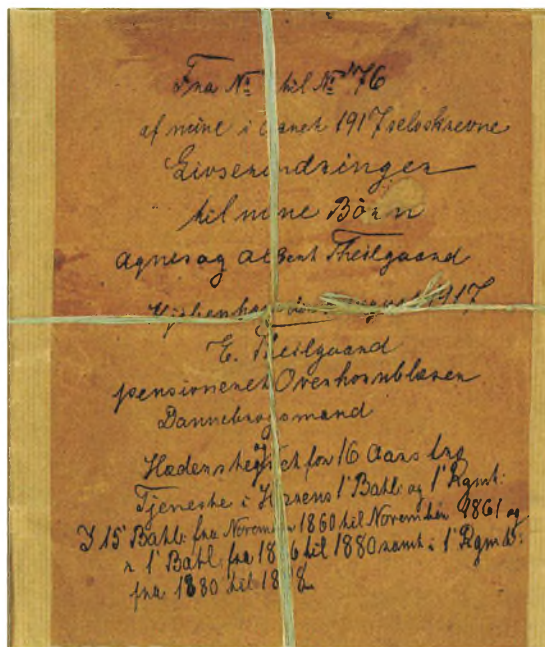 Fra No 1 til No 76
af mine i Aaret 1917 selvskrevne
Livserindringer
til mine Börn
Agnes og Albert Theilgaard
Kjöbenhavn August 1917
E. Theilgaard
pensioneret Overhornblæser
Dannebrogsmand
Hæderstegn for 16 Aars tro
Tjeneste i Hærens 1' Batl: og 1' Rgmt:
I 15' Batl: fra November 1860 til November 1861 og
1' Batl: fra til 1880 samt i 1' Rgmt:
fra 1880 til